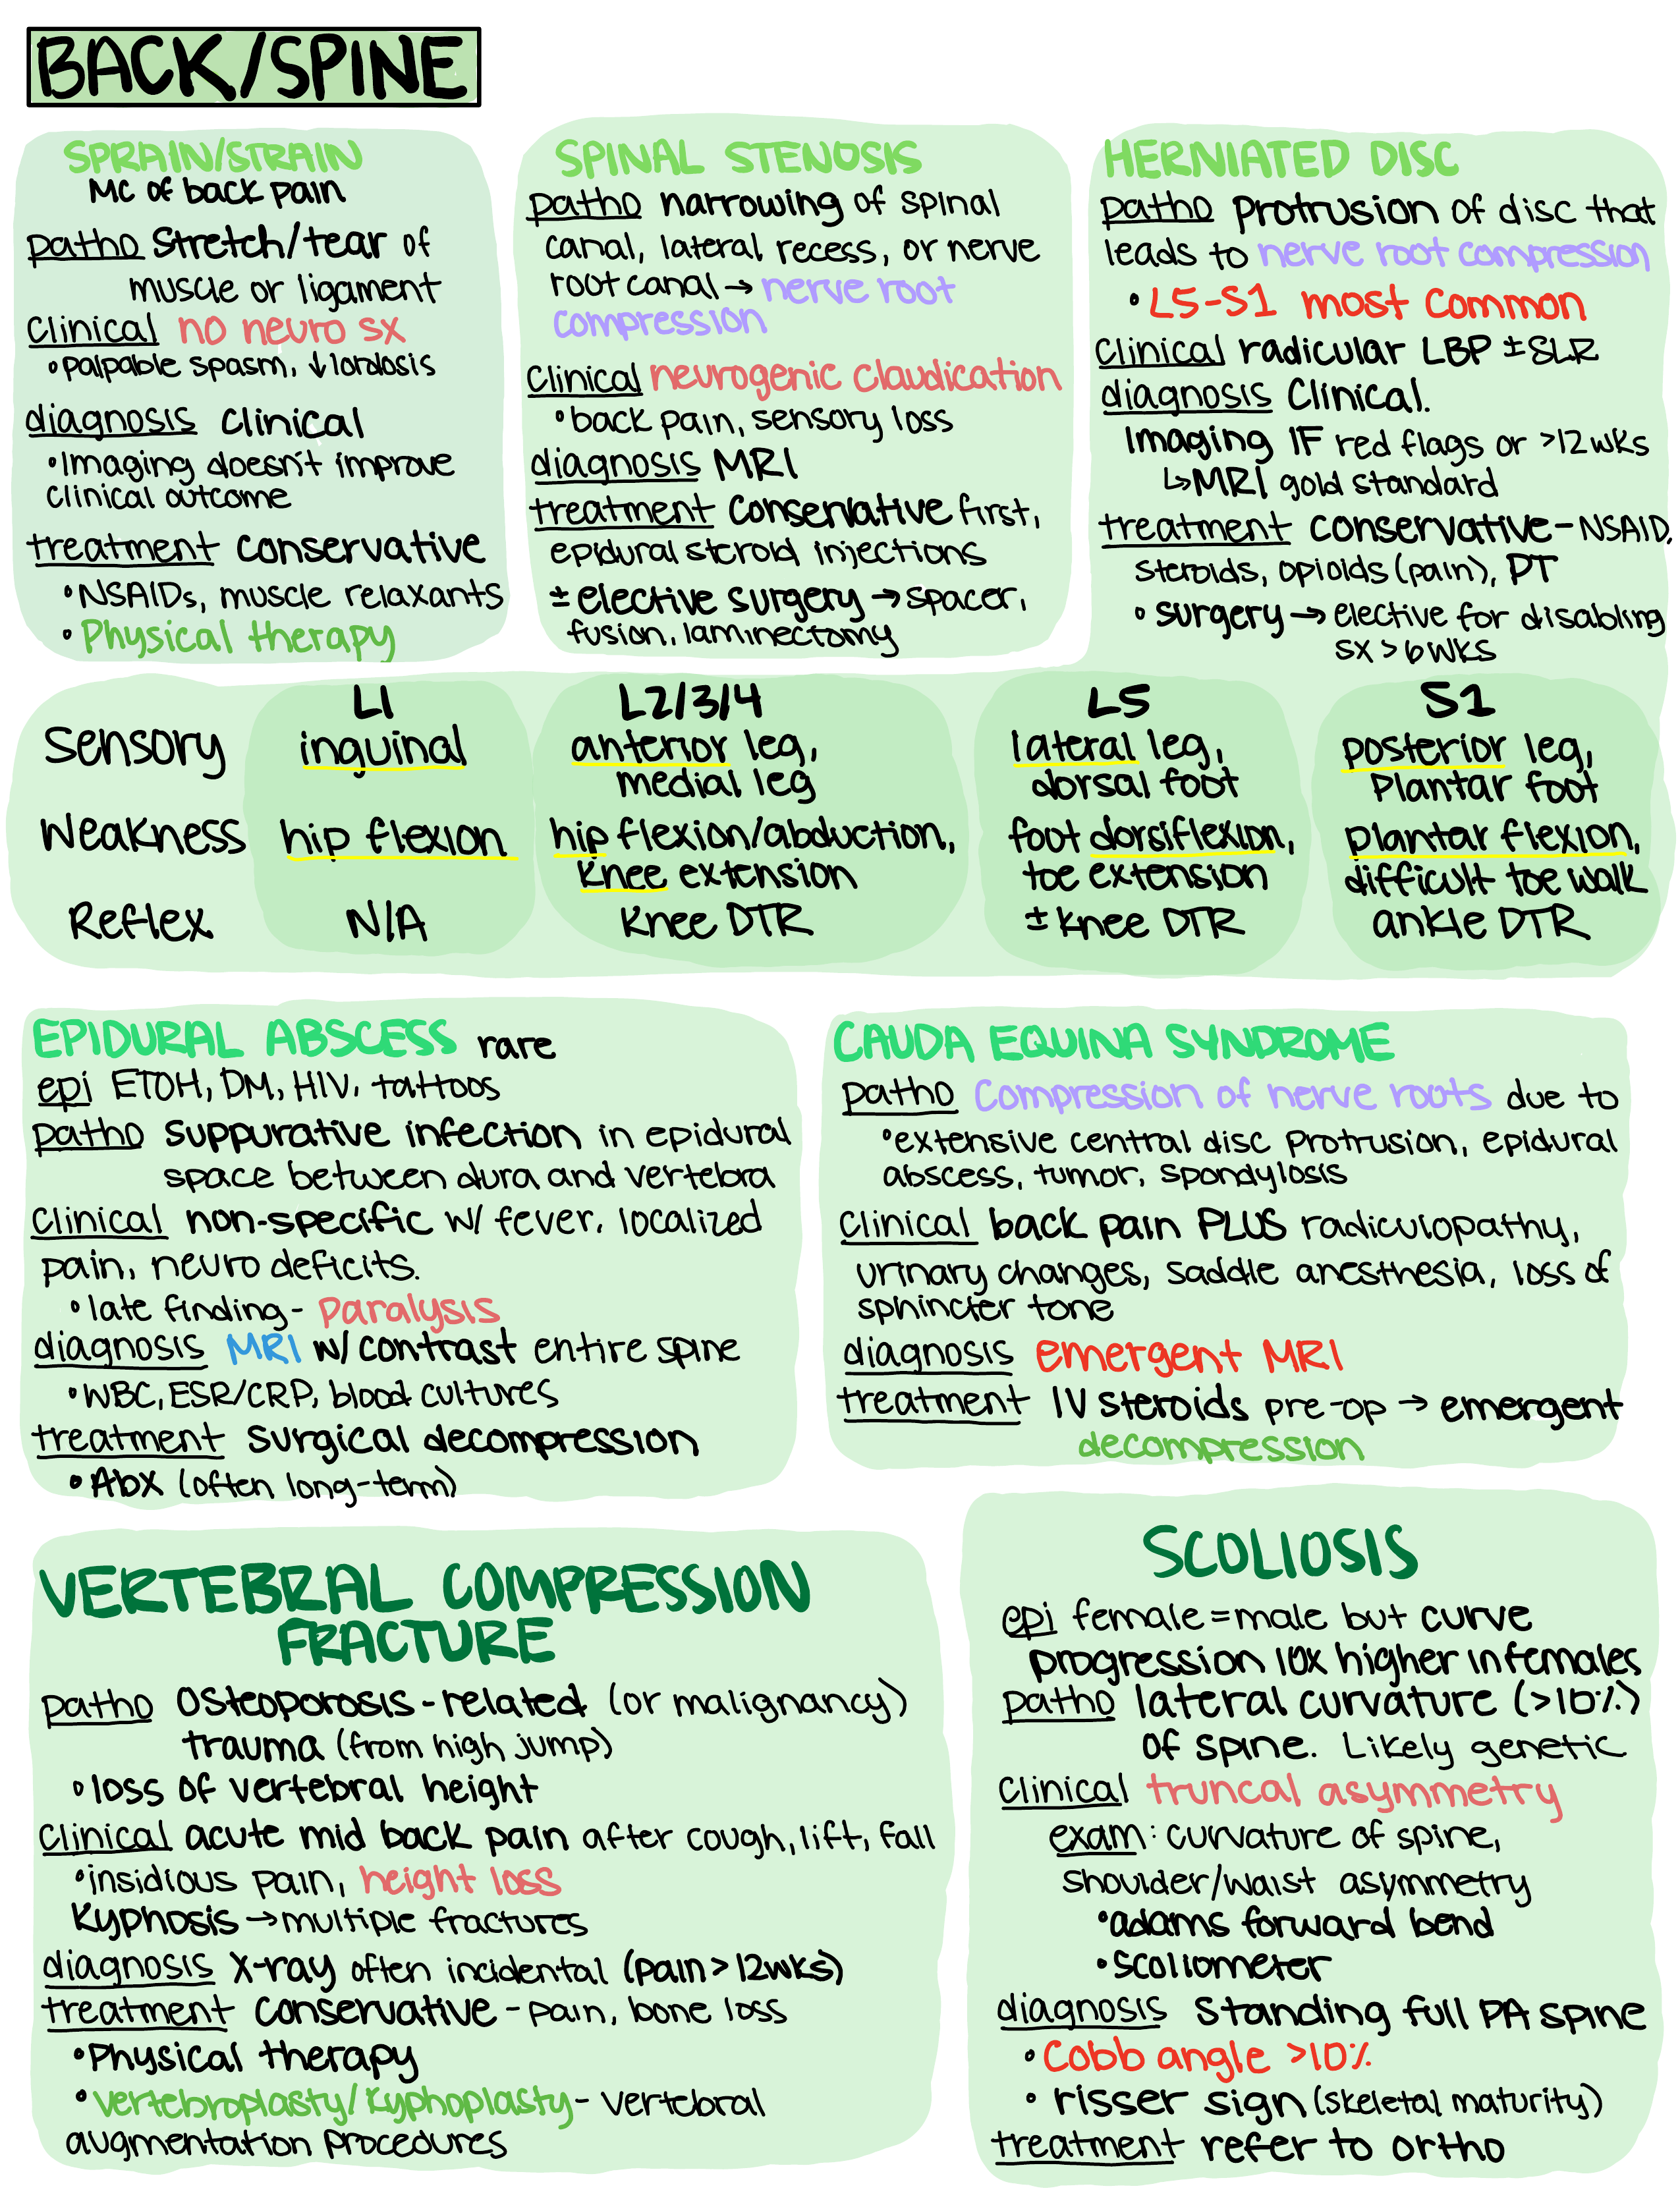 BACK/SPINE
SPRAIN/STRAIN
MC of back pain
patho stretch/tear of
muscle or ligament
clinical no neuro sx
•palpable spasm, ↓lordosis
diagnosis clinical
•Imaging doesn't improve
clinical outcome
treatment conservative
•NSAIDs, muscle relaxants
•Physical therapy
SPINAL STENOSIS
patho narrowing of spinal
canal, lateral recess, or nerve
root canal → nerve root
compression
clinical neurogenic claudication
•back pain, sensory loss
diagnosis MRI
treatment conservative first,
epidural steroid injections
± elective surgery → spacer,
fusion, laminectomy
HERNIATED DISC
patho protrusion of disc that
leads to nerve root compression
•L5-S1 most common
clinical radicular LBP ± SLR
diagnosis clinical.
Imaging IF red flags or >12 wks
↳MRI gold standard
treatment conservative - NSAID,
steroids, opioids (pain), PT
•surgery → elective for disabling
sx > 6 wks
L1 L2/3/4 L5 S1
Sensory inguinal anterior leg, lateral leg, posterior leg,
medial leg dorsal foot plantar foot
Weakness hip flexion hip flexion/abduction, foot dorsiflexion, plantar flexion,
knee extension toe extension difficult toe walk
Reflex N/A Knee DTR ± knee DTR ankle DTR
EPIDURAL ABSCESS rare
epi ETOH, DM, HIV, tattoos
patho suppurative infection in epidural
space between dura and vertebra
clinical non-specific w/ fever, localized
pain, neuro deficits.
•late finding - paralysis
diagnosis MRI w/ contrast entire spine
•WBC, ESR/CRP, blood cultures
treatment surgical decompression
•Abx (often long-term)
CAUDA EQUINA SYNDROME
patho compression of nerve roots due to
•extensive central disc protrusion, epidural
abscess, tumor, spondylosis
clinical back pain PLUS radiculopathy,
urinary changes, saddle anesthesia, loss of
sphincter tone
diagnosis emergent MRI
treatment IV steroids pre-op → emergent
decompression
VERTEBRAL COMPRESSION
FRACTURE
patho osteoporosis-related (or malignancy)
trauma (from high jump)
•loss of vertebral height
clinical acute mid back pain after cough, lift, fall
•insidious pain, height loss
Kyphosis → multiple fractures
diagnosis X-ray often incidental (pain > 12wks)
treatment conservative - pain, bone loss
•Physical therapy
•vertebroplasty/kyphoplasty - vertebral
augmentation procedures
SCOLIOSIS
epi female = male but curve
progression 10x higher in females
patho lateral curvature (>10%)
of spine. Likely genetic
clinical truncal asymmetry
exam: curvature of spine,
shoulder/waist asymmetry
•adams forward bend
•scoliometer
diagnosis standing full PA spine
•Cobb angle >10%
•risser sign (skeletal maturity)
treatment refer to ortho